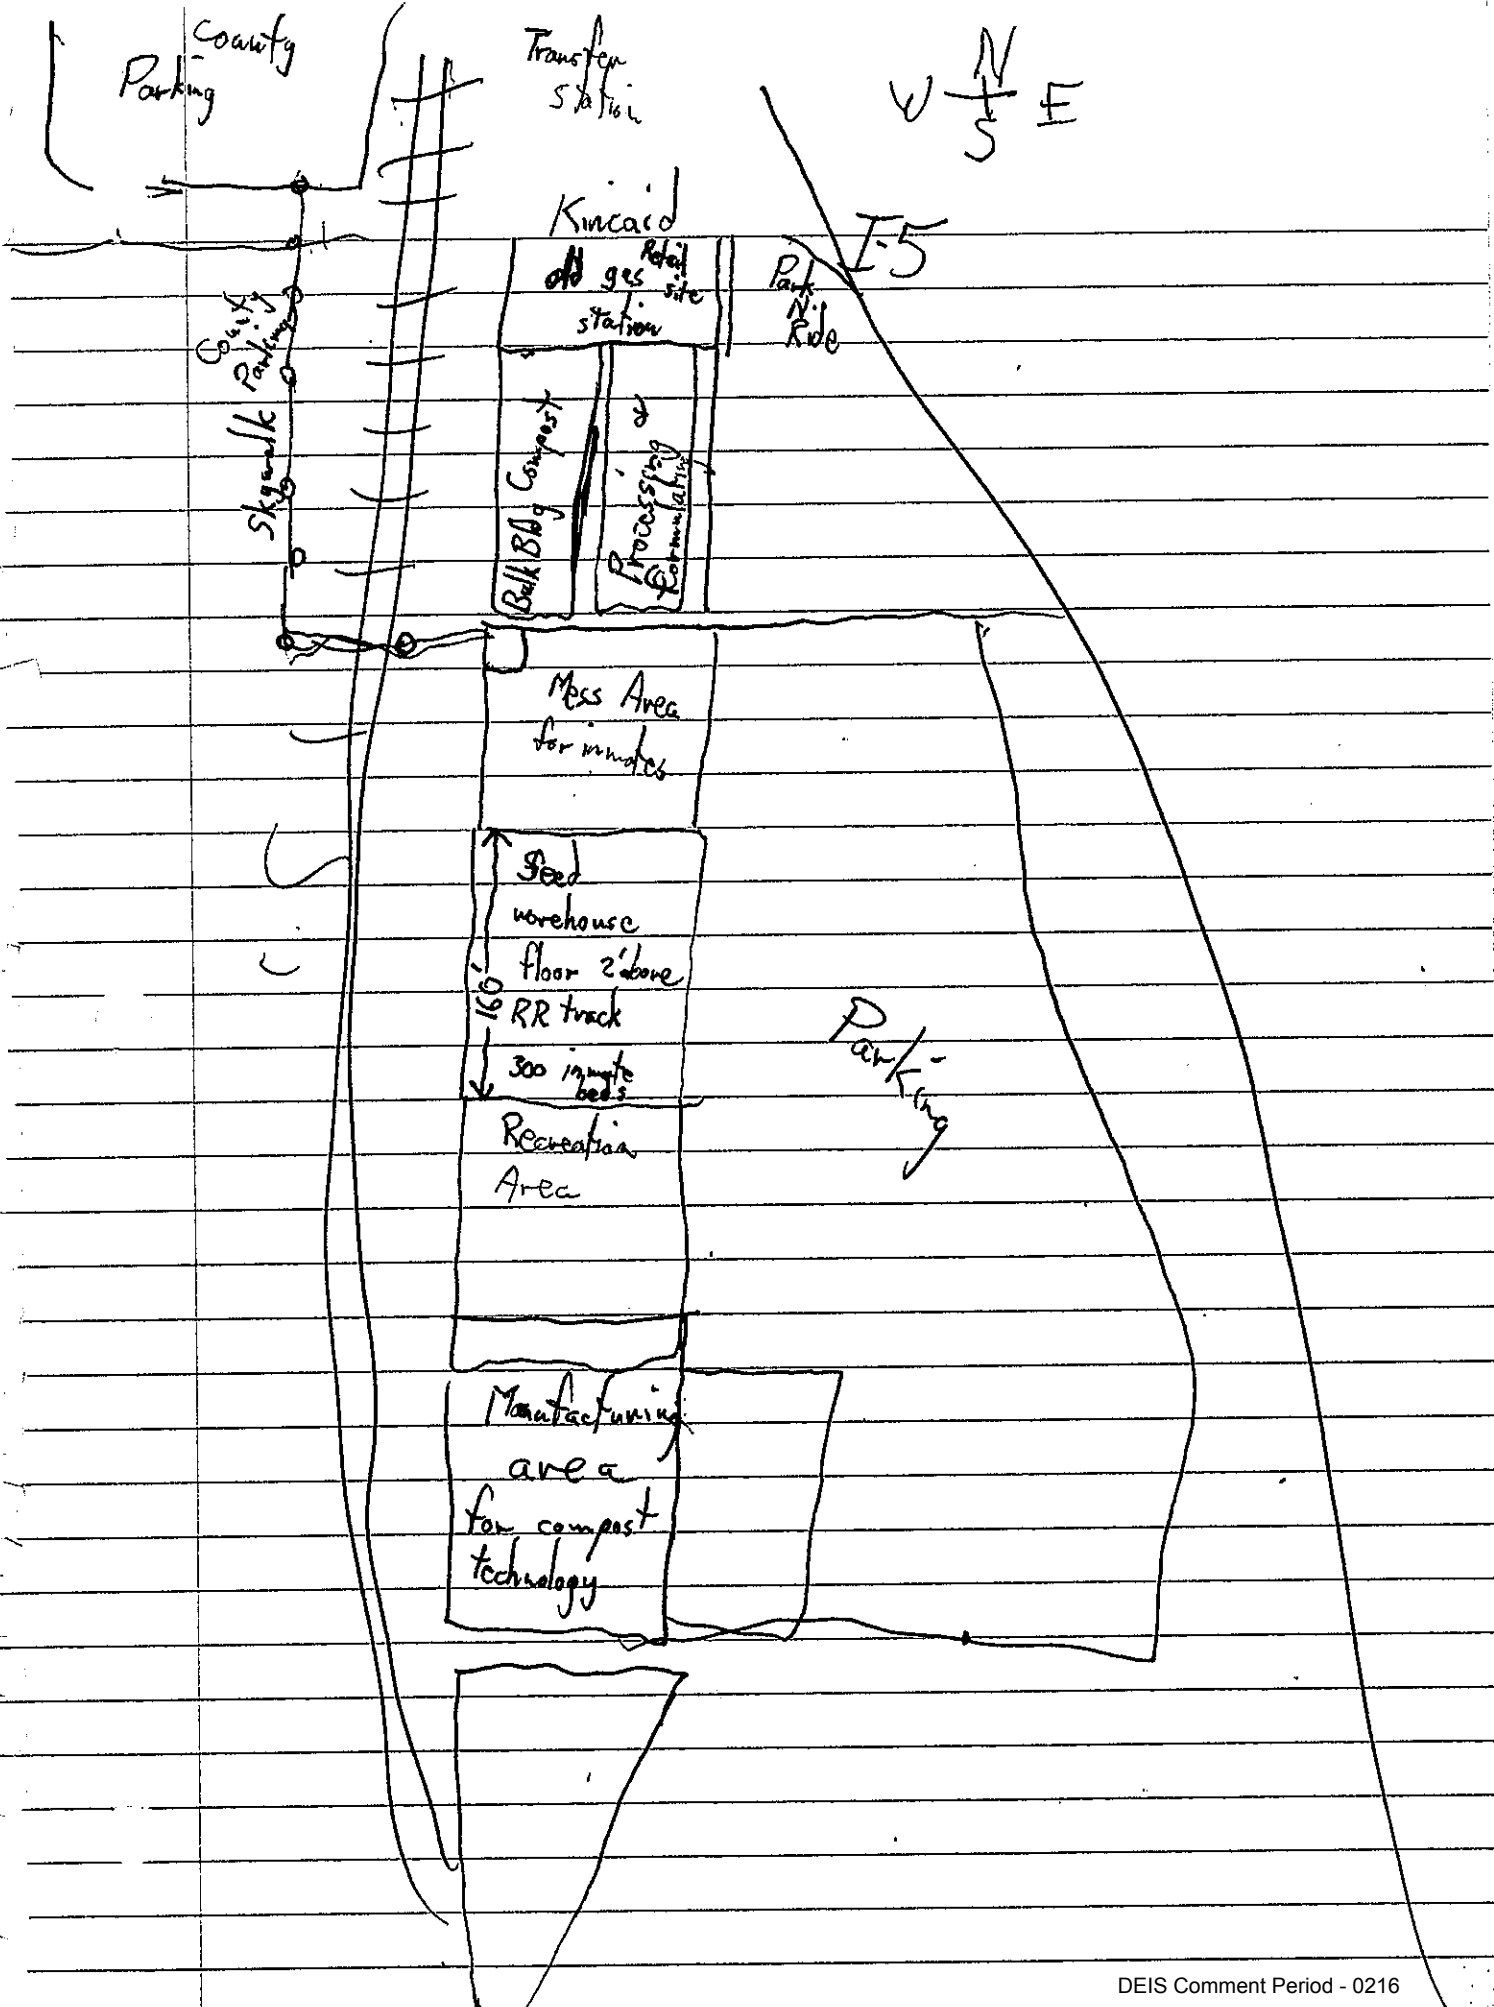 County
Parking
Transfer
Station
N
W E
S
Kincaid
I-5
old gas Retail
site
station
Park
N
Ride
County
Parking
Skywalk
Bulk Bldg Compost
Processing
&
formulating
Mess Area
for inmates
Seed
warehouse
floor 2' above
RR track
300 inmate
beds
160'
Parking
Recreation
Area
Manufacturing
area
for compost
technology
DEIS Comment Period - 0216